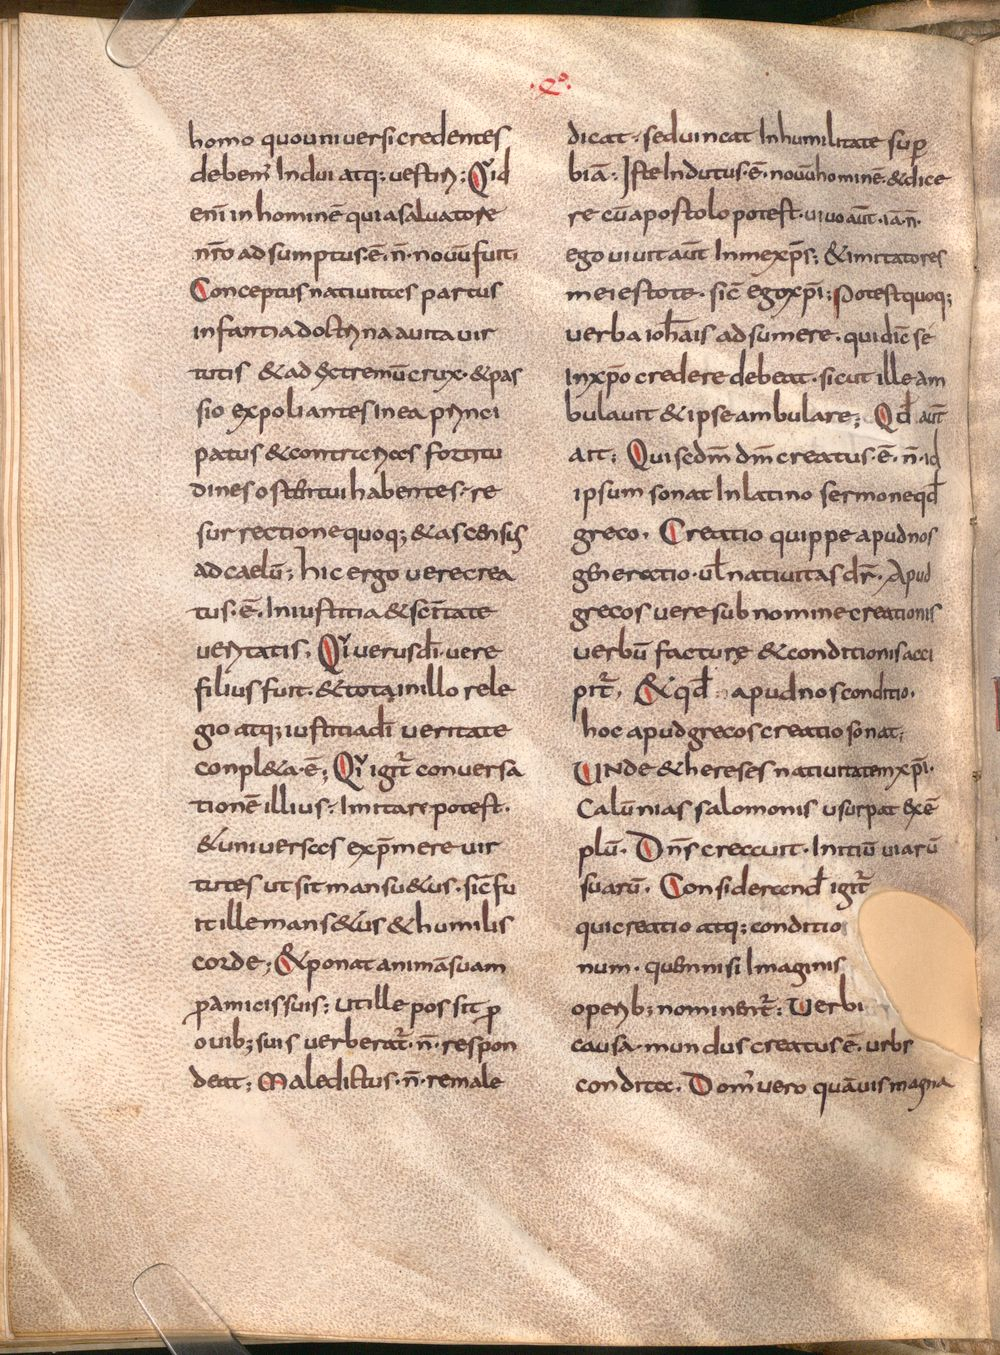 ·Eº·
homo quo universi credentes
debem̅ Indui atq; vestiri; Quid
eni̅ in homine̅ qui a salvatore
nr̅o adsumptus·e̅·n̅·novu̅ fuit;
Conceptus nativitas partus
infantia doctrina a vita vir
tutis & ad extremu̅ crux·&pas
sio expoliantes in ea princi
patus & contrarias fortitu
dines ostentui habentes; re
surrectione quoq; & ascensis
ad caelu̅; hic ergo vere crea
tus·e̅·In iustitia & sc̅itate
veritatis. Qui verus di̅ vere
filius fuit·& tota in illo rele
gio atq; iustitia di̅ veritate
conpl&a·e̅; Qui igit̅ conversa
tione̅ illius: Imitare potest·
& universas exp̅mere vir
tutes ut sit mansu&us·sic̅ fu
it ille mans&us & humilis
corde; & ponat anima̅ suam
p̱ amicis suis; ut ille pos sit p̱
ovib; suis verberat̅·n̅·respon
deat; Maledictus·n̅·remale
dicat· sed vincat In humilitate sup̱
bia̅· Iste Indutus·e̅·novu̅ homine̅·& dice
re cu̅ apostolo potest·vivo aut̅·ia̅·n̅·
ego vivit aut̅ In me xp̅s; & imitatores
mei estote· sic̅ ego xp̅i; Potest quoq;
verba ioh̅ais adsumere· qui dic̅ se
In xp̅o credere debeat· sicut ille am
bulavit & ipse ambulare; Qd̅ aut̅
ait; Qui sedm̅ dm̅ creatus·e̅·n̅·id
ipsum sonat In latino sermone qd̅
greco· Creatio quippe apud nos
generatio·ul̅ nativitas dr̅· Apud
grecos vere sub nomine creationis
verbu̅ facturę & conditionis acci
pit̅· & qd̅ apud nos conditio·
hoc apud grecos creatio sonat;
Unde & hereses nativitatem xp̅i·
Calu̅nias salomonis usurpat exe̅
plu̅· Dn̅s creavit· Initiu̅ viaru̅
suaru̅· Considerand̅ igit̅
qui creatio atq; conditio
num· quam nisi Imaginis
operib; nominent̅; Verbi
causa· mundus creatus e̅· urbs
condita· Dom̅ vero qua̅vis magna